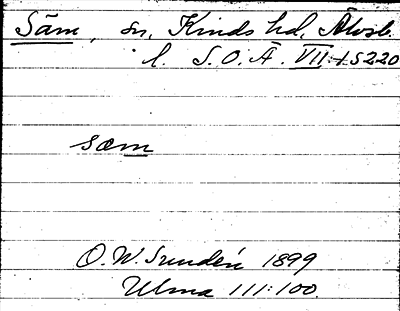 Säm, sn, Kinds hd, Älvsb.
l. S.O.Ä. VII:1 S 220
sæm
O.W. Sundén 1899
Ulma 111:100.